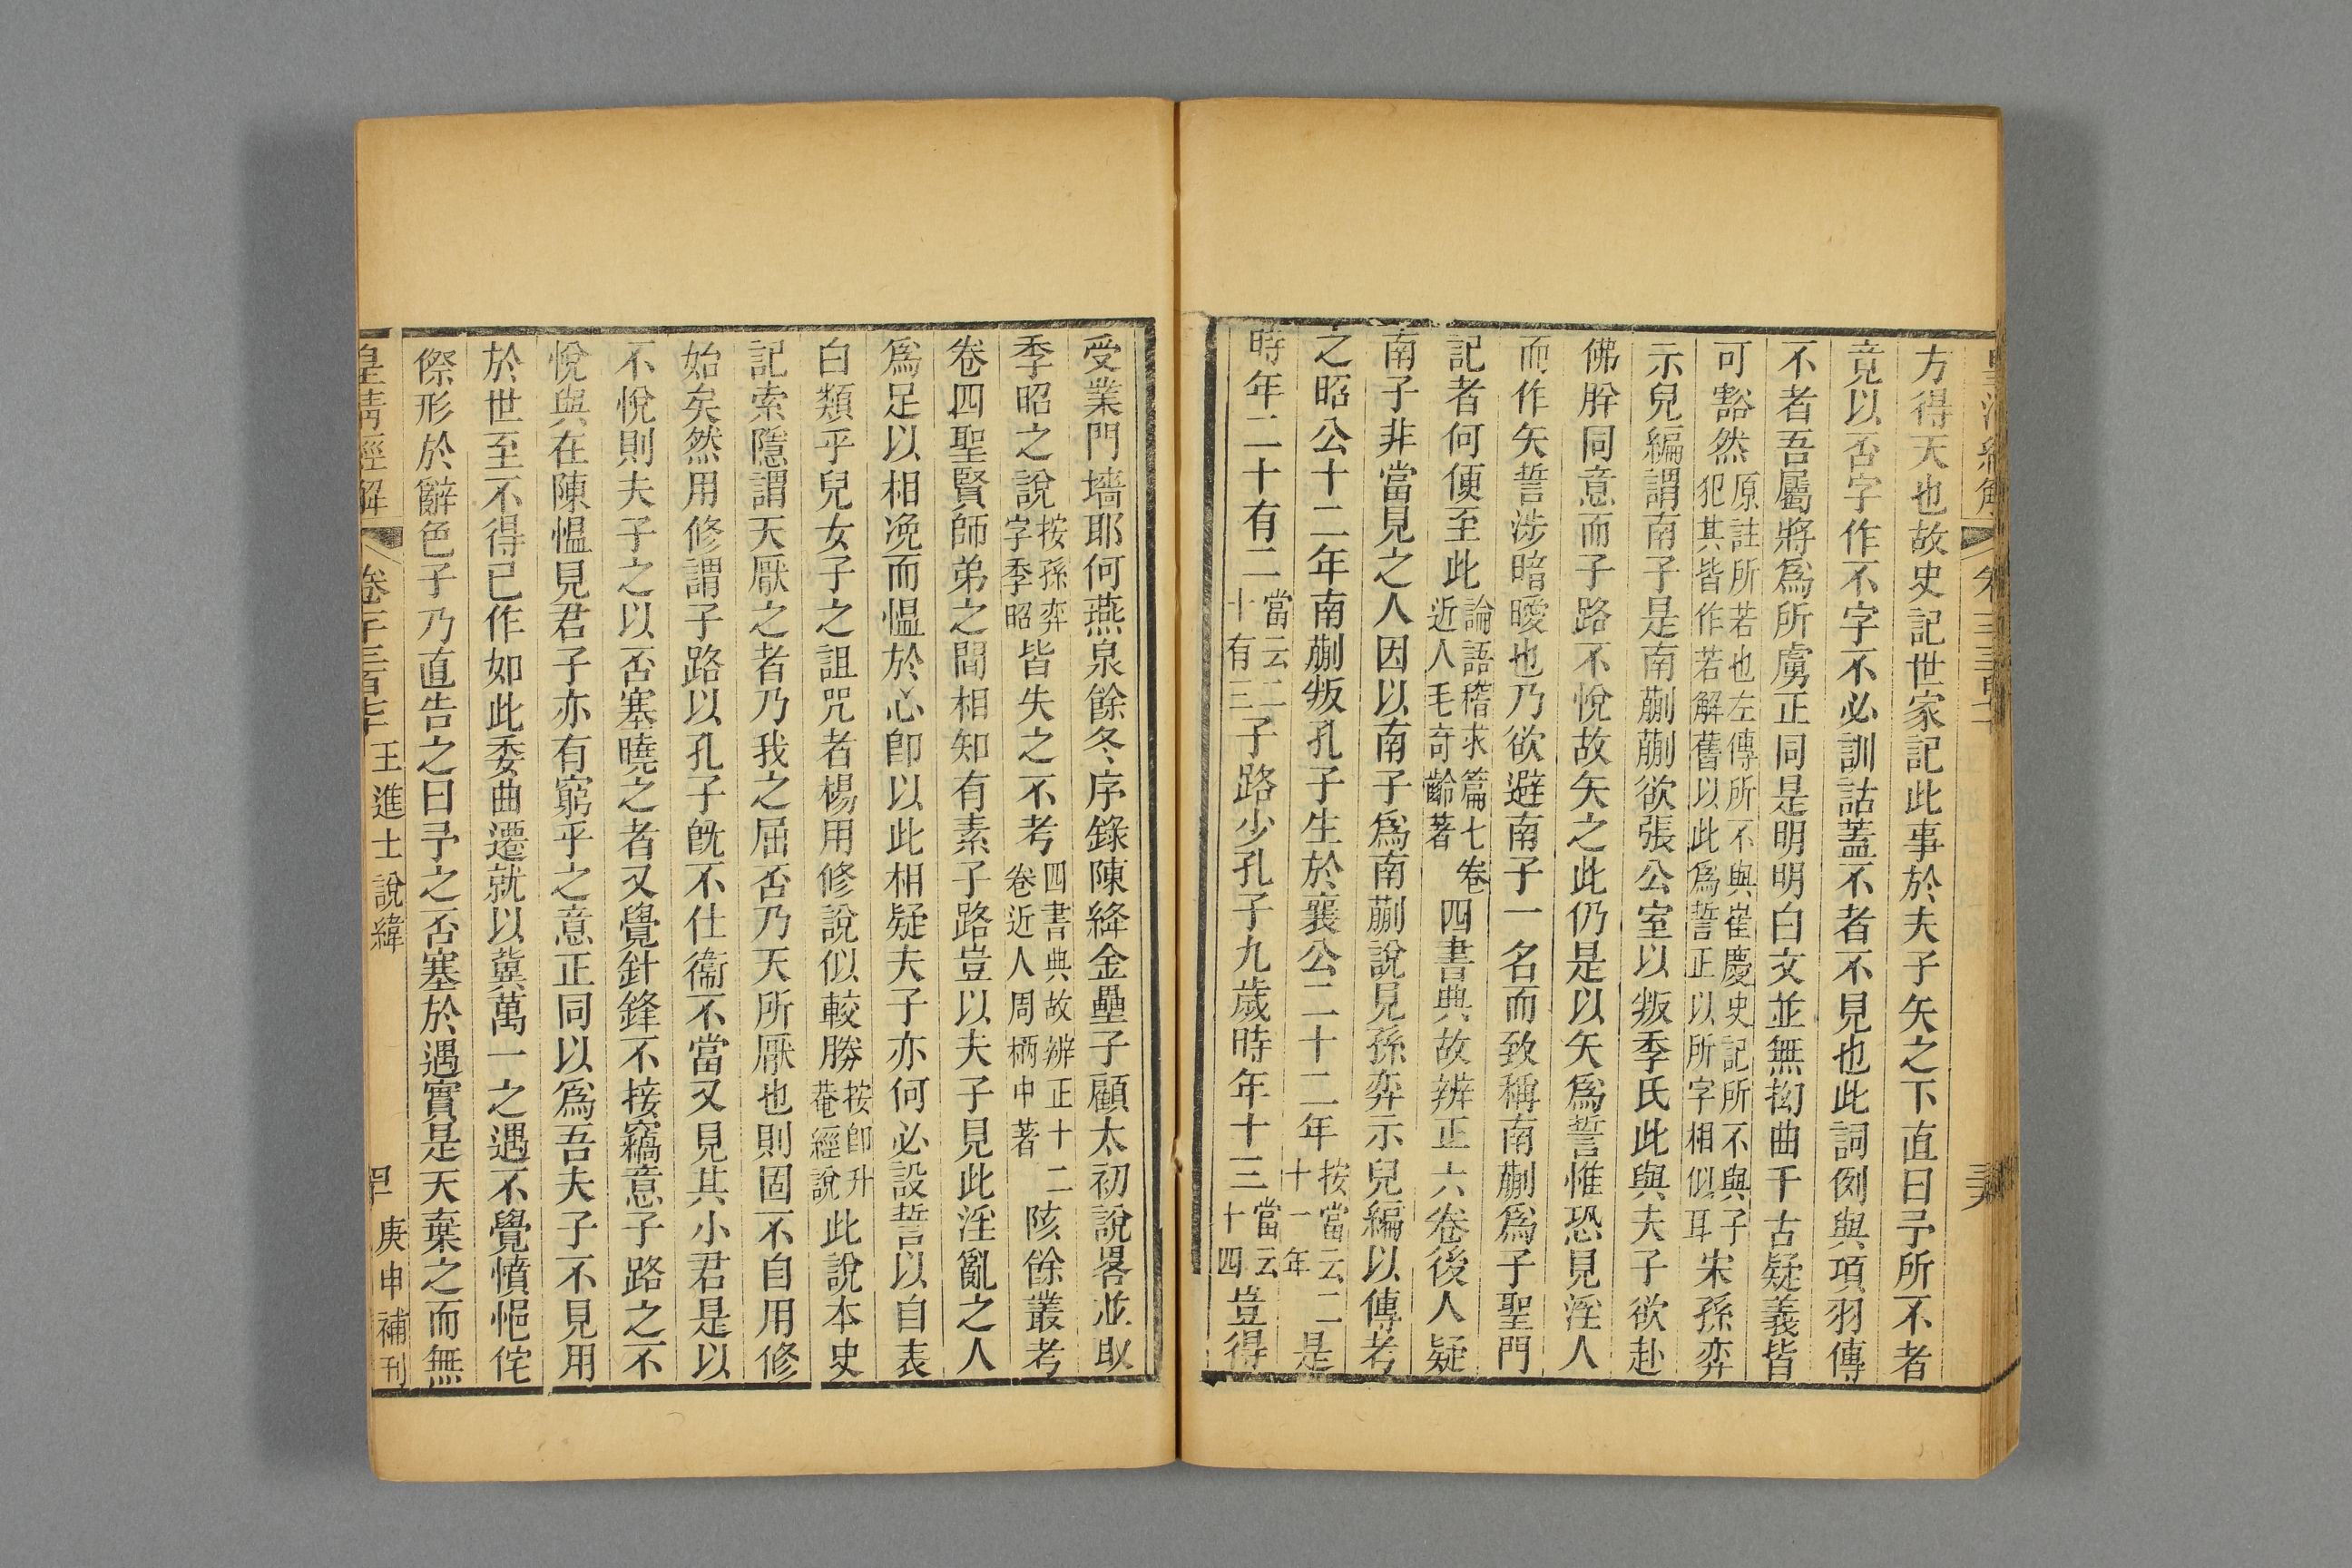 方得天也故史記世家記此事於夫子矢之下直曰予所不者
竟以否字作不字不必訓詁蓋不者不見也此詞例與項羽傳
不者吾屬將爲所虜正同是明明白文並無拗曲千古疑義皆
可豁然原註所若也左傳所不與崔慶史記所不與子犯其皆作若解舊以此爲誓正以所字相似耳宋孫弈
示兒編謂南子是南蒯蒯欲張公室以叛季氏此與夫子欲赴
佛肸同意而子路不悅故矢之此仍是以矢爲誓惟恐見淫人
而作矢誓涉暗曖也乃欲避南子一名而致稱南蒯爲子聖門
記者何便至此論語稽求篇七卷近人毛奇齡著四書典故辨正六卷後人疑
南子非當見之人因以南子爲南蒯說見孫弈示兒編以傳考
之昭公十二年南蒯叛孔子生於襄公二十二年按當云二十一年是
時年二十有二當云二十有三子路少孔子九歲時年十三當云十四豈得
受業門墻耶何燕泉餘冬序錄陳絳金罍子顧太初說畧並取
季昭之說按孫弈字季昭皆失之不考四書典故辨正十二卷近人周柄中著陔餘叢考
卷四聖賢師弟之間相知有素子路豈以夫子見此淫亂之人
爲足以相浼而慍於心卽以此相疑夫子亦何必設誓以自表
白類乎兒女子之詛咒者楊用修說似較勝按卽升菴經說此說本史
記索隱謂天厭之者乃我之屈否乃天所厭也則固不自用修
始矣然用修謂子路以孔子旣不仕衞不當又見其小君是以
不悅則夫子之以否塞曉之者又覺針鋒不接竊意子路之不
悅與在陳慍見君子亦有窮乎之意正同以爲吾夫子不見用
於世至不得已作如此委曲遷就以冀萬一之遇不覺憤悒侘
傺形於辭色子乃直告之曰予之否塞於遇實是天棄之而無
皇清經解 卷千三百七十 王進士說緯 庚申補刊